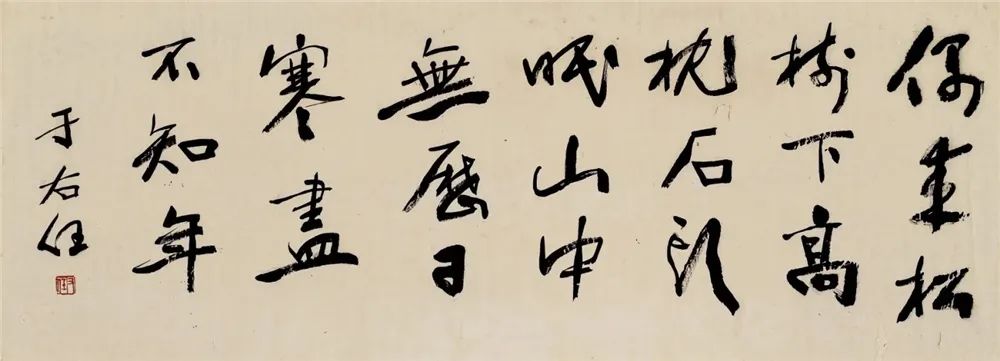 偶來松
樹下高
枕石頭
眠山中
無歷日
寒盡
不知年
于右任